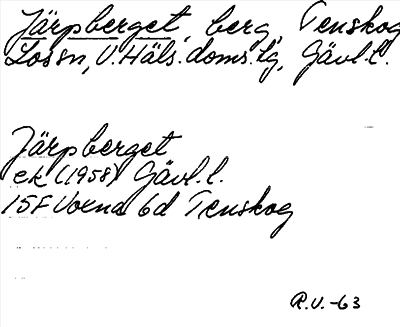 Järpberget, berg, Tenskog
Lossn, V.Häls.doms.lg, Gävl.l.
Järpberget
ek (1958) Gävl.l.
15F Voxna 6d Tenskog
R.V. -63